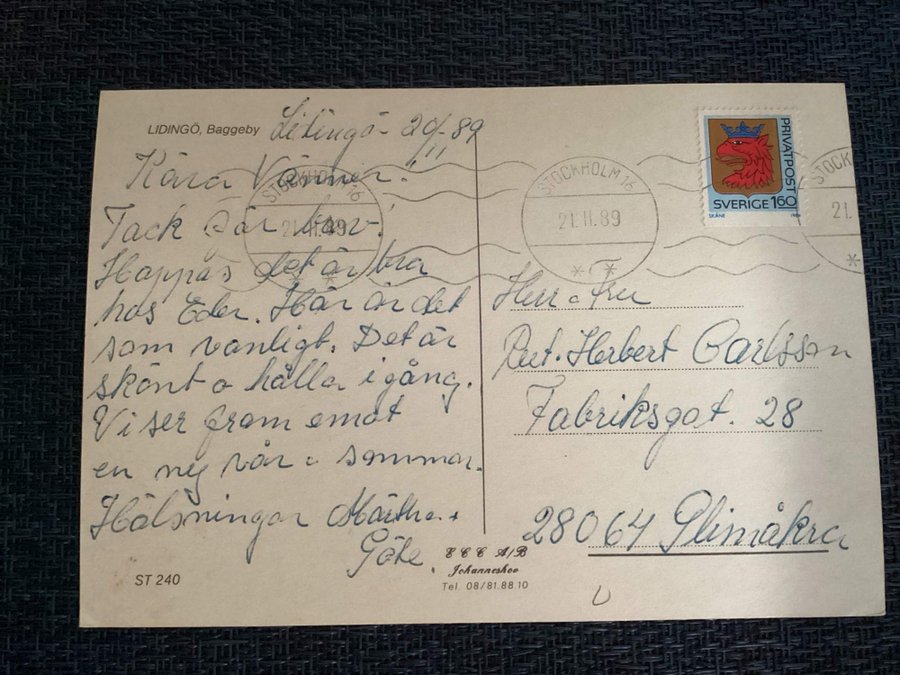 LIDINGÖ, Baggeby
Lidingö 20/11-89
Kära Vänner!
Tack för
Hoppas det är bra
hos Eder. Här är det
som vanligt. Det är
skönt o hålla igång.
Vi ser fram emot
en ny vår o sommar.
Hälsningar Märtha +
Göte.
ST 240
CCC A/B
Johanneshov
Tel. 08/81.88.10
STOCKHOLM 16
21.11.89
STOCKHOLM 16
21.11.89
STOCKHOLM
21.
PRIVATPOST
SVERIGE 160
SKÅNE
Herr o Fru
Herbert Carlsson
Fabriksgat. 28
28064 Glimåkra